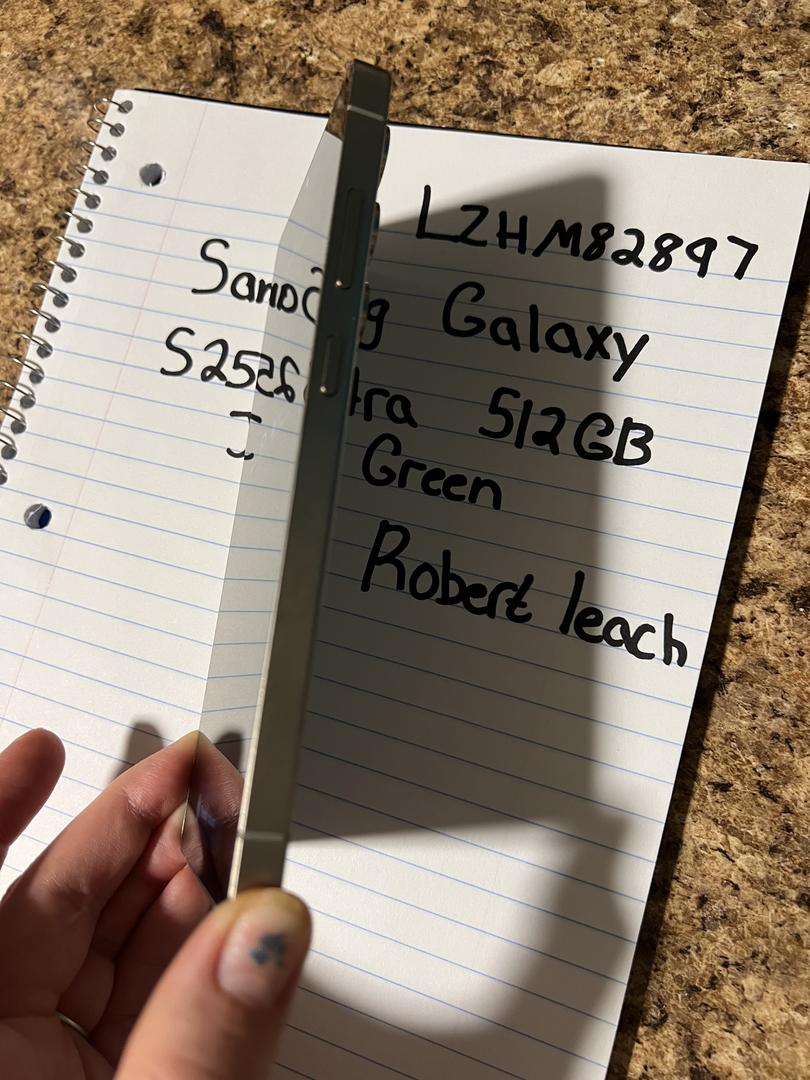 LZHM82897
Samsung Galaxy
S25 Ultra 512GB
Green
Robert leach